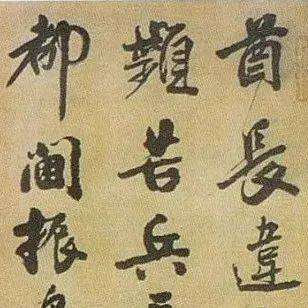 酋長違
難苦兵
都閫振